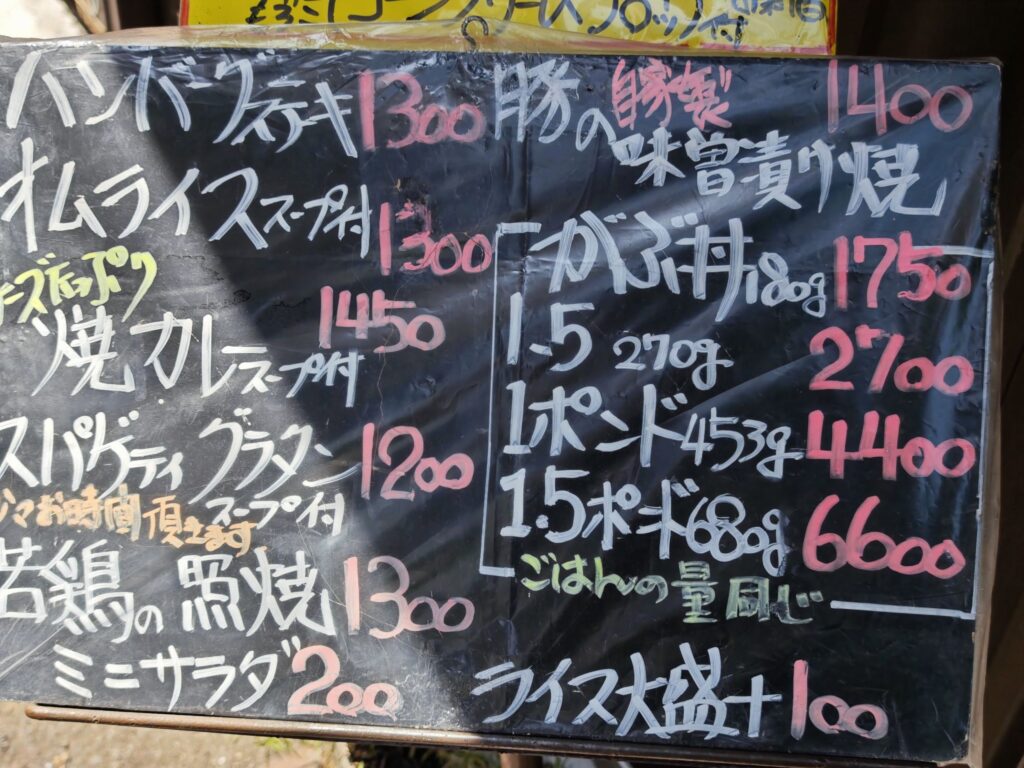 ハンバーグステーキ 1300
オムライス スープ付 1300
チーズたっぷり
焼カレー スープ付 1450
スパゲティグラタン スープ付 1200
お時間頂きます
若鶏の照焼 1300
ミニサラダ 200
豚の自家製 1400
味噌漬け焼
がぶ丼 180g 1750
1.5 270g 2700
1ポンド 453g 4400
1.5ポンド 680g 6600
ごはんの量同じ
ライス大盛+100